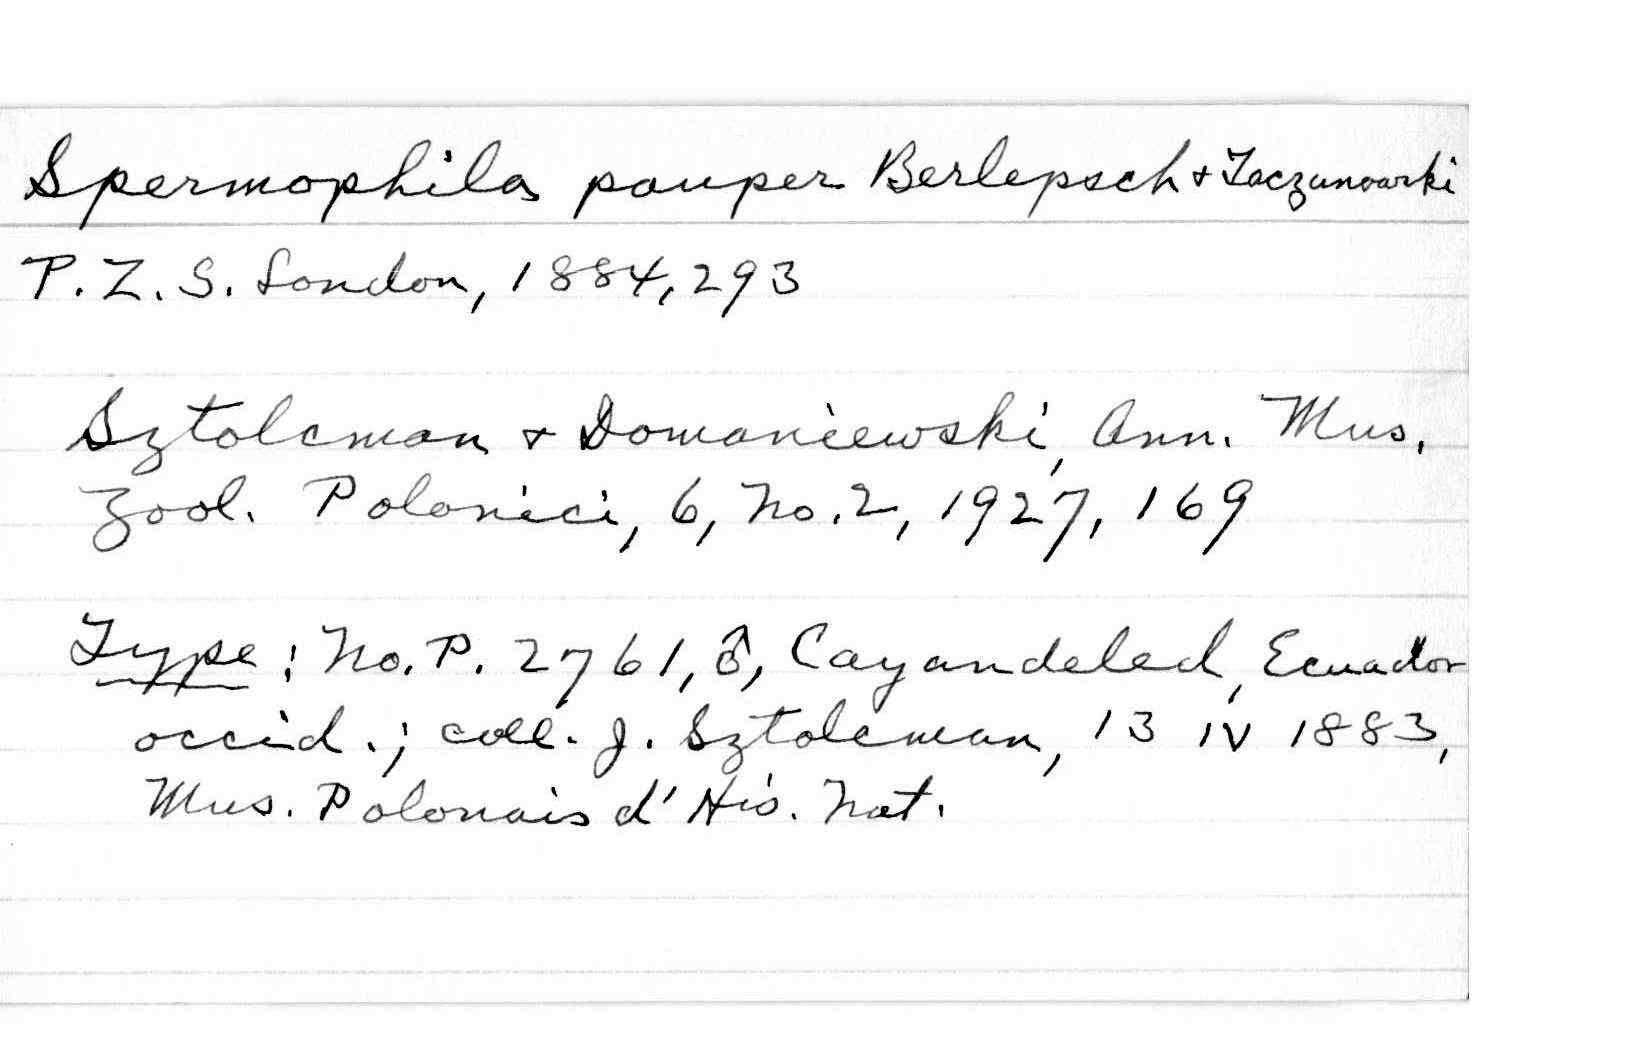 Spermophila pauper Berlepsch + Taczanowski
P. Z. S. London, 1884, 293
Sztolcman + Domaniewski, Ann. Mus.
Zool. Polonici, 6, No. 2, 1927, 169
Type: No. P. 2761, ♂, Cayandeled, Ecuador
occid.; coll. J. Sztolcman, 13 IV 1883,
Mus. Polonais d' His. Nat.